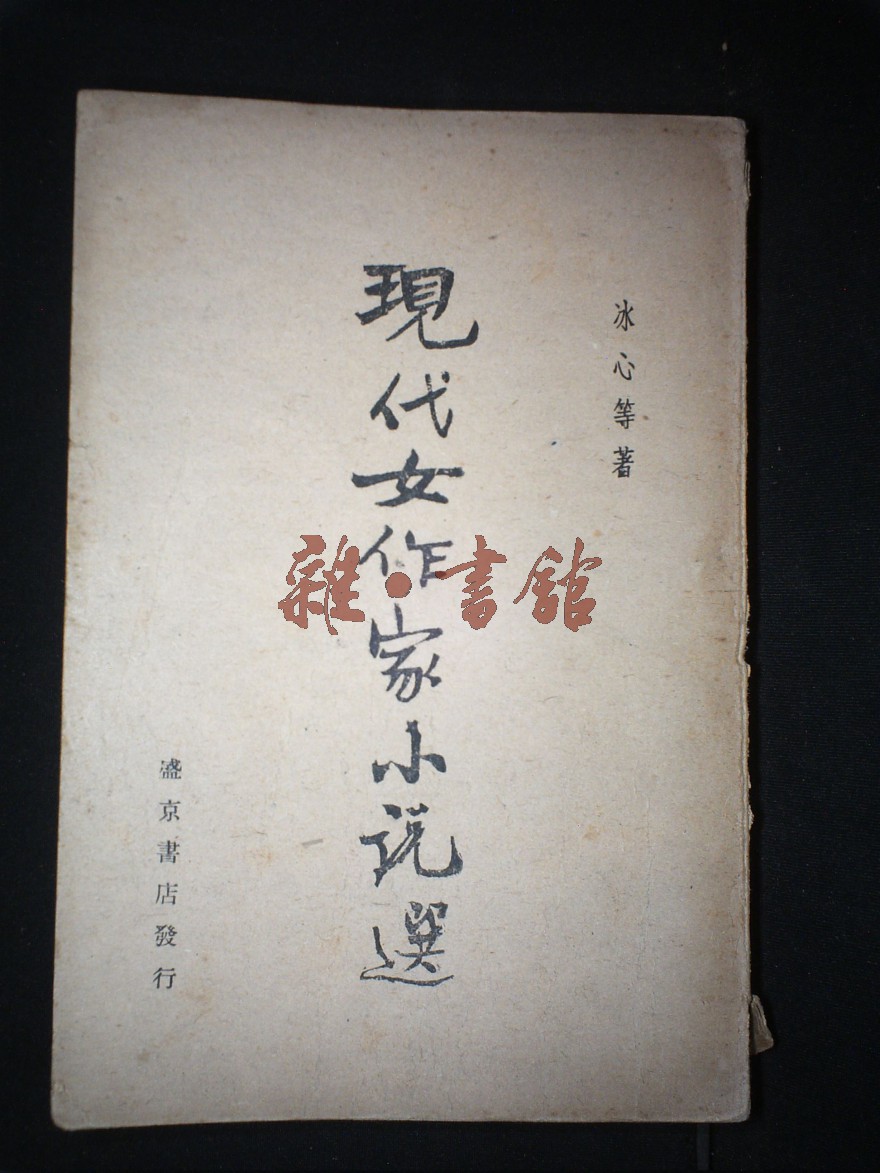 冰心等著
現代女作家小説選
盛京書店發行
雜·書館